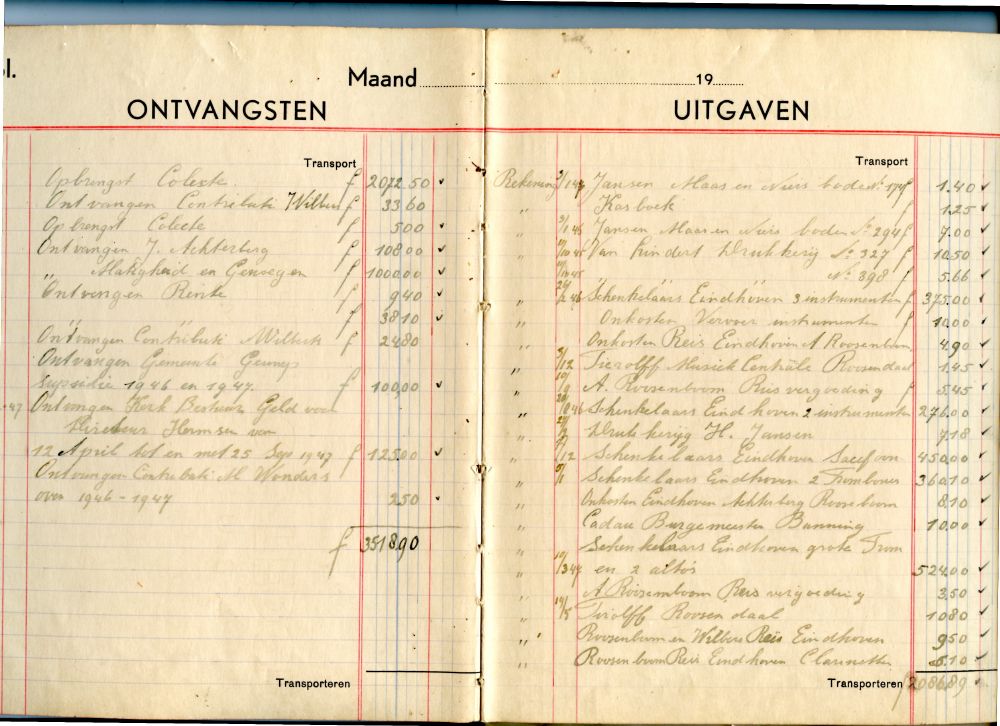 Bl.
Maand 19
ONTVANGSTEN
Transport
Opbrengst Colecte f 2072 50 ✓
Ontvangen Contributi Wilbers f 33 60
Opbrengst Colecte f 500 ✓
Ontvangen J. Achterberg f 108 00 ✓
" Matigheid en Genoegen f 1000,00 ✓
Ontvangen Rente f 9 40 ✓
" " f 38 10 ✓
Ontvangen Contributi Wilbers f 24 80
Ontvangen Gemeente
supsidie 1946 en 1947. f 100,00 ✓
47 Ontvangen Kerk Bestuur Geld voor
Directeur Hermsen van
12 April tot en met 25 Sep 1947 f 125 00 ✓
Ontvangen Contributi M. Wonders
over 1946 - 1947 2 50 ✓
f 3518,90
Transporteren
UITGAVEN
Transport
Rekening Jansen Maas en Niers bode No 174 f 1.40 ✓
" Kasboek f 1.25 ✓
" Jansen Maas en Niers bode No 294 f 7.00 ✓
" Van Lindert Drukkerij No 327 f 10.50 ✓
" No 398 f 5.66 ✓
" Schenkelaars Eindhoven 3 instrumenten f 375.00 ✓
" Onkosten Vervoer instrumenten f 10.00 ✓
" Onkosten Reis Eindhoven A Roosenboom 4.90 ✓
" Tierolff Musiek Centrale Roosendaal 1.45 ✓
" A. Roosenboom Reis vergoeding f 5.45 ✓
" Schenkelaars Eindhoven 2 instrumenten 276.00 ✓
" Drukkerijg H. Jansen 7.18 ✓
" Schenkelaars Eindhoven 450.00 ✓
" Schenkelaars Eindhoven 2 Trombones 360.10 ✓
" Onkosten Eindhoven Achterberg Rooseboom 8.10 ✓
" Cadau Burgemeester Banning 10.00 ✓
" Schenkelaars Eindhoven grote Trom
" 10/3 47 en 2 alto's 524.00 ✓
" A Roosemboom Reis vergoeding 3,50 ✓
" Tirolff Roosendaal 10 80 ✓
" Roosenboom en Wilbers Reis Eindhoven 9 50 ✓
" Roosenboom Reis Eindhoven Clarinetten 5.10 ✓
Transporteren f 2086.89 ✓